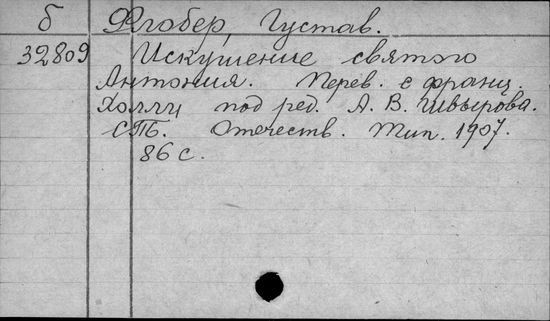 б Флобер, Густав.
32809 Искушение святого
Антония. Перев. с франц.
Холли под ред. А. В. Швырова.
СПб. Отечеств. Тип. 1907.
86 с.